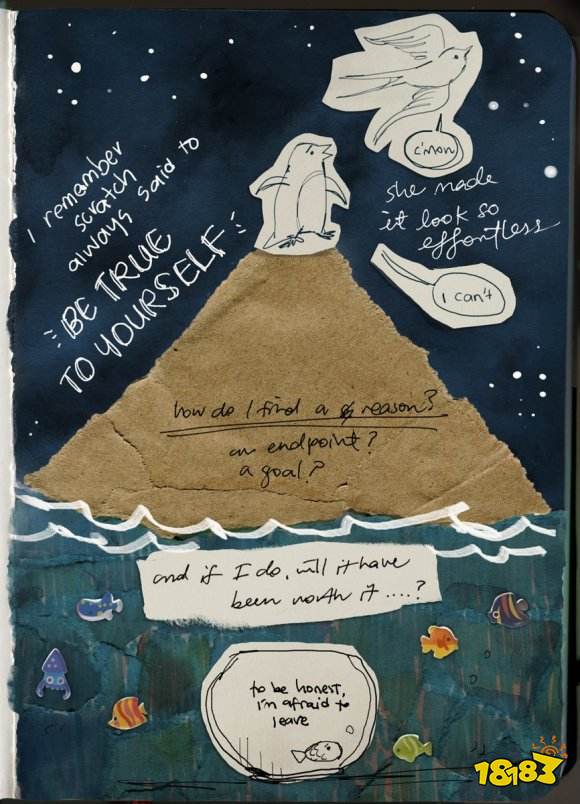 I remember
scratch
always said to
BE TRUE
TO YOURSELF
c'mon
she made
it look so
effortless
I can't
how do I find a reason?
an endpoint?
a goal?
and if I do, will it have
been worth it ....?
to be honest,
i'm afraid to
leave
18183